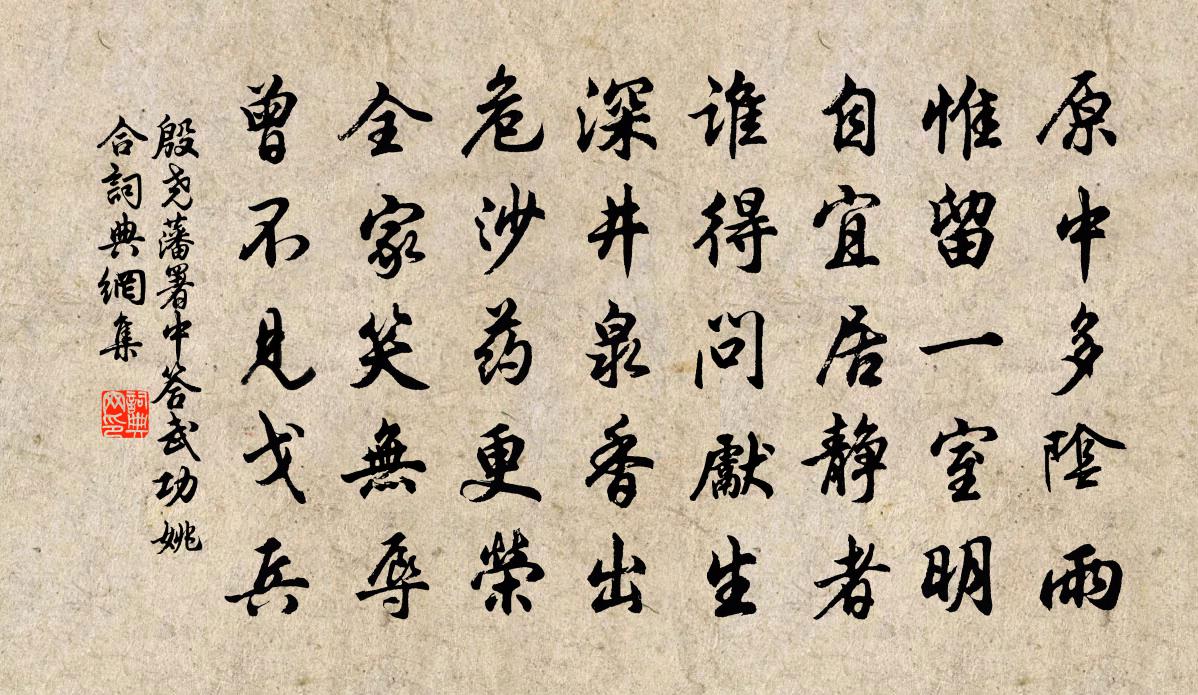 原中多陰雨
惟留一室明
自宜居静者
谁得問獻生
深井泉香出
危沙药更榮
全家笑無辱
曾不見戈兵
殷尧藩署中答武功姚
合詞典網集
詞典
网印